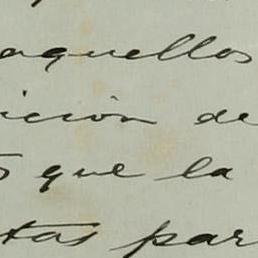 aquellos
ición de
s que la
tas par